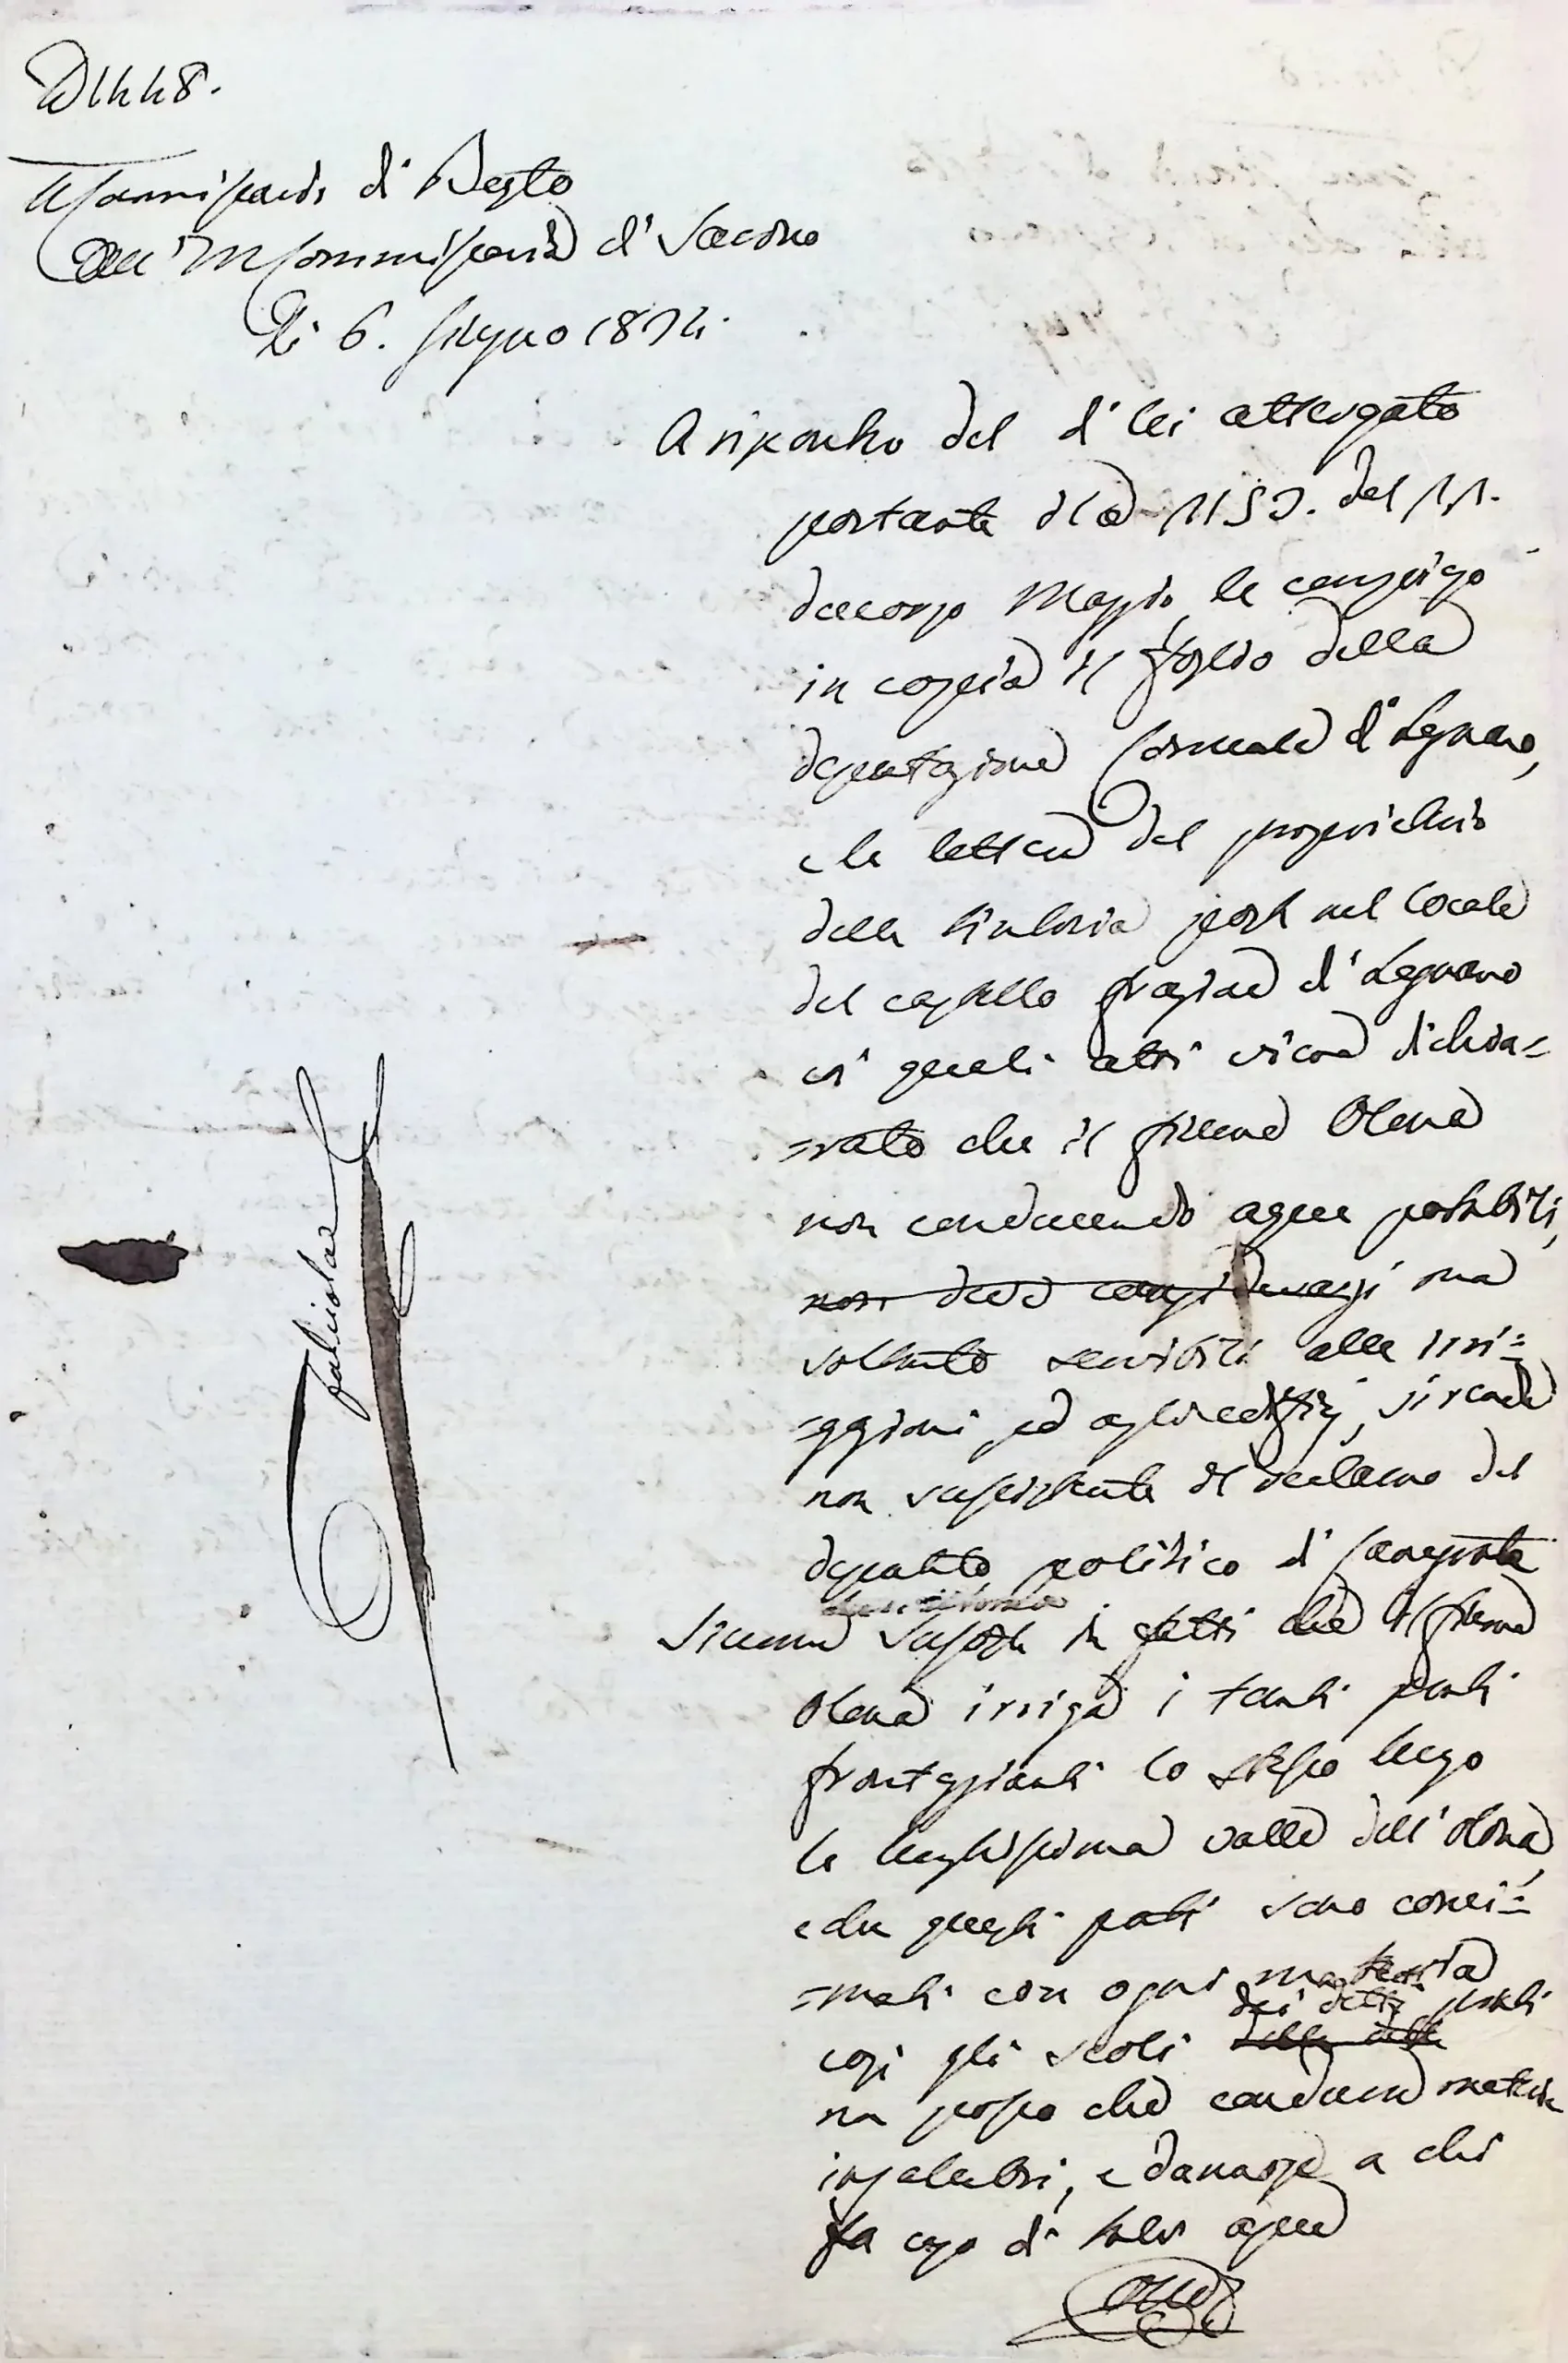 1448.
Commissario di Busto
All' I.R. Commissario di Saronno
Li 6. Giugno 1834.
A riscontro del di lei attergato
portante il N. 1157. del 31.
decorso Maggio, le compiego
in copia il foglio della
deputazione Comunale di Legnano,
e la lettera del proprietario
della tintoria posta nel locale
del castello frazione di Legnano
coi quali atti viene dichia=
=rato che il fiume Olona
non conducendo acque potabili,
non deve considerarsi ma
soltanto servibili alla irri=
=gazioni ed agli edifizj, si rende
non sussistente il reclamo del
deputato politico di Canegrate
Siccome in fatti che il fiume
Olona irriga i tanti prati
fronteggianti lo stesso lungo
la lunghissima valle dell'Olona,
e che questi prati sono conci=
=mati con ogni materia
dei detti prati
così gli scoli della valle
possa che conducono materie
insalubri, e dannose a chi
fa uso di tale acqua